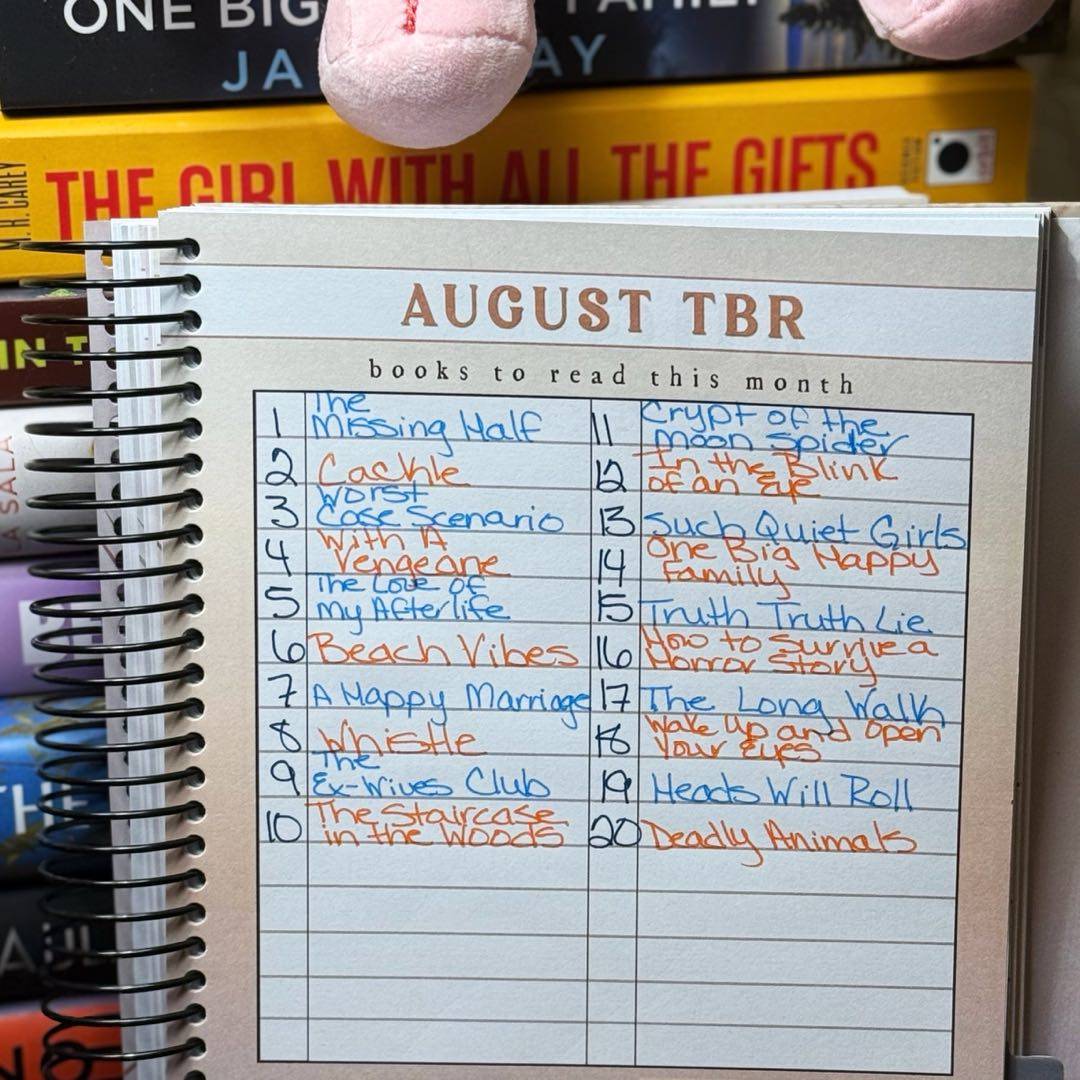 ONE BIG FAMILY
JA AY
M. R. CAREY
THE GIRL WITH ALL THE GIFTS
IN T
A SALA
THE
AUGUST TBR
books to read this month
1 The
Missing Half
2 Cackle
3 Worst
Case Scenario
4 With A
Vengeane
5 The Love of
my Afterlife
6 Beach Vibes
7 A Happy Marriage
8 Whistle
9 The
Ex-Wives Club
10 The Staircase
in the Woods
11 Crypt of the
moon spider
12 In the Blink
of an Eye
13 Such Quiet Girls
14 One Big Happy
Family
15 Truth Truth Lie
16 How to Survive a
Horror Story
17 The Long Walk
18 Wake Up and Open
Your Eyes
19 Heads Will Roll
20 Deadly Animals